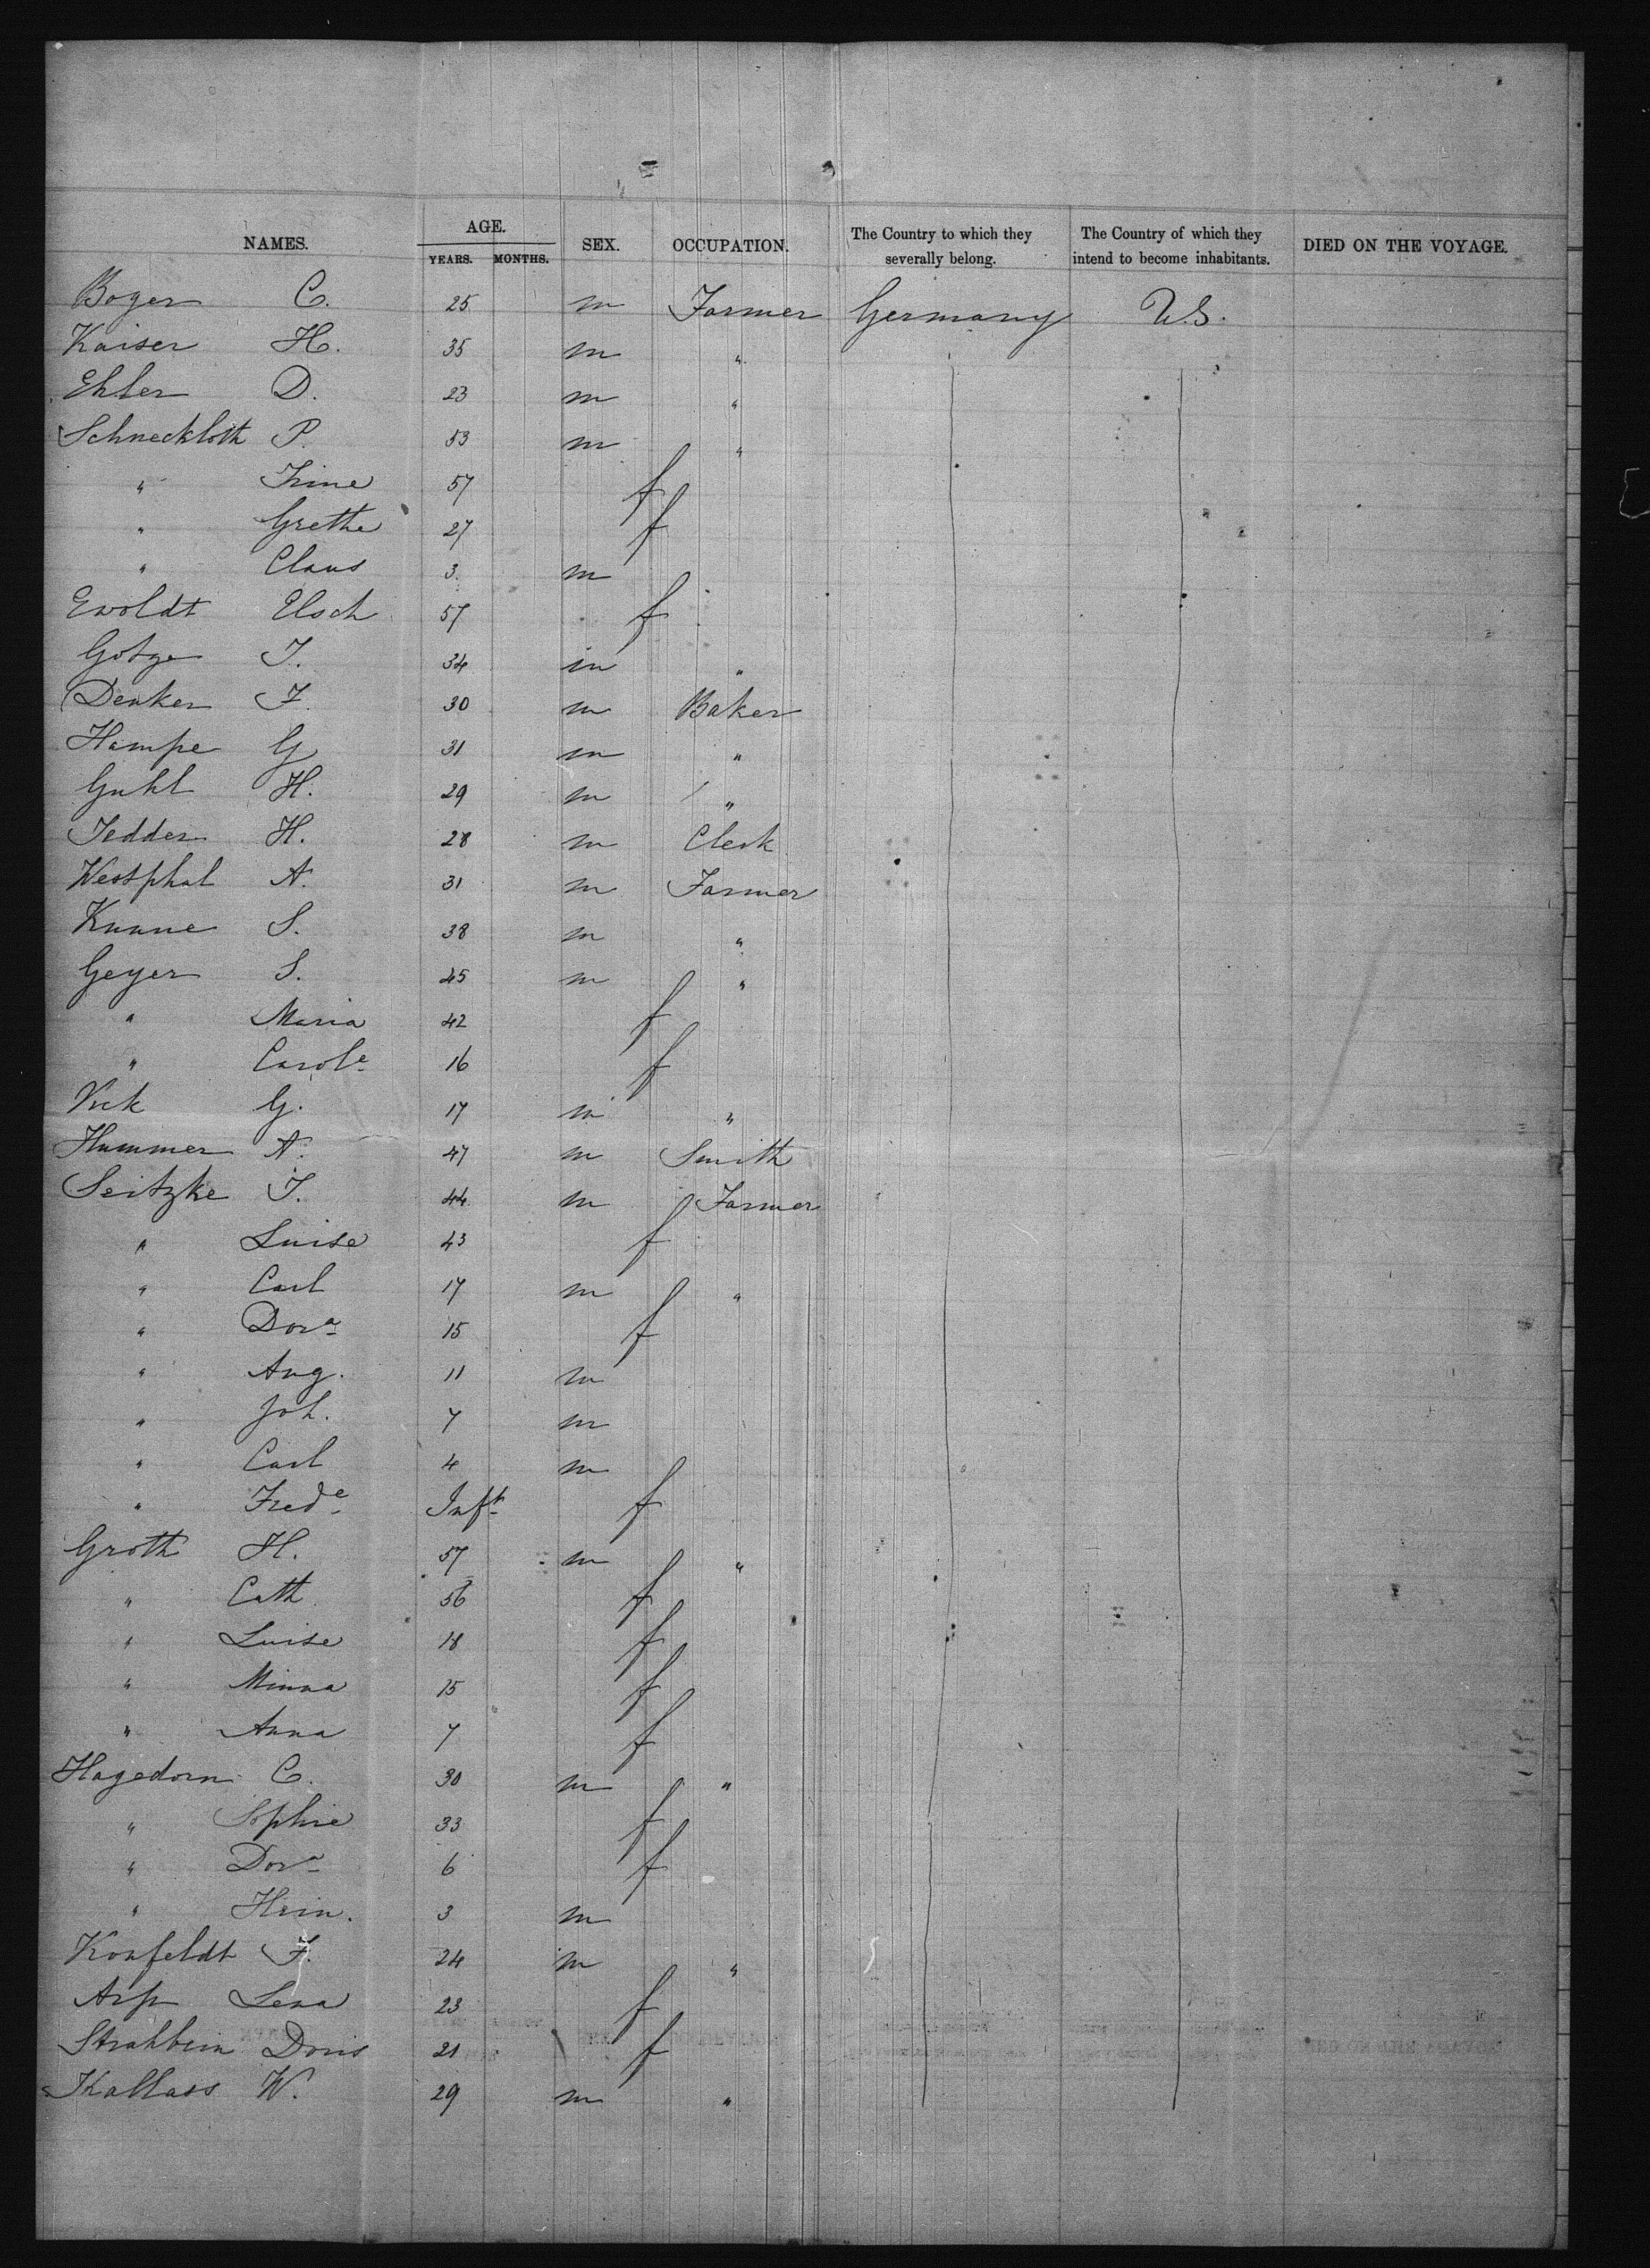 NAMES. AGE. YEARS. MONTHS. SEX. OCCUPATION. The Country to which they severally belong. The Country of which they intend to become inhabitants. DIED ON THE VOYAGE.
Boger C. 25 m Farmer Germany U.S.
Kaiser H. 35 m "
Ehler D. 23 m "
Schneckloth P. 53 m "
" Trine 57 f
" Grethe 27 f
" Claus 3. m
Ewoldt Elsch 57 f
Gotze J. 34 m "
Denker F. 30 m Baker
Hampe G 31 m "
Guhl H. 29 m "
Tedder H. 28 m Clerk
Westphal A. 31 m Farmer
Knune S. 38 m "
Geyer S. 45 m "
" Maria 42 f
" Carole 16 f
Vick G. 17 m "
Hummer A. 47 m Smith
Seitzke J. 44 m Farmer
" Luise 43 f
" Carl 17 m "
" Dora 15 f
" Aug. 11 m
" Joh. 7 m
" Carl 4 m
" Frede Inft f
Groth H. 57 m "
" Cath. 56 f
" Luise 18 f
" Minna 15 f
" Anna 7 f
Hagedorn C. 30 m "
" Sophie 33 f
" Dora 6 f
" Hein. 3 m
Konfeldt F. 24 m "
Arp Lena 23 f
Strahbein Doris 21 f
Kallass W. 29 m "